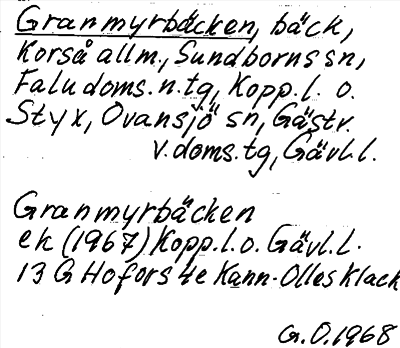 Granmyrbäcken, bäck,
Korså allm., Sundborns sn,
Falu doms. n. tg, Kopp. l. o.
Styx, Ovansjö sn, Gästr.
v. doms. tg, Gävl. l.
Granmyrbäcken
ek (1967) Kopp. l. o. Gävl. l.
13 G Hofors 4e Kann-Olles Klack
G. O. 1968